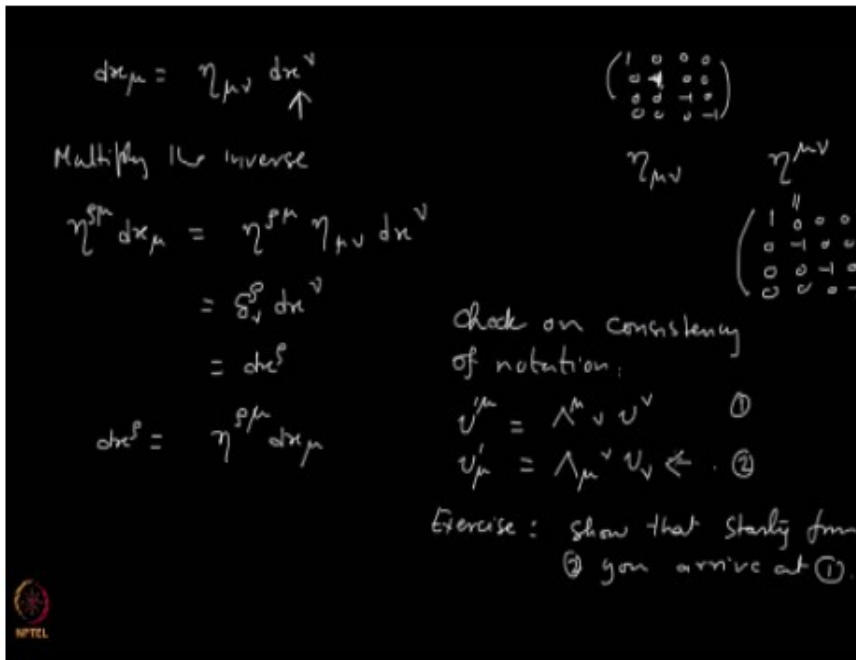 dxμ = ημν dxν
↑
Multiply the inverse
ηρμ dxμ = ηρμ ημν dxν
= δρν dxν
= dxρ
dxρ = ηρμ dxμ
( 1 0 0 0
0 -1 0 0
0 0 -1 0
0 0 0 -1 )
ημν ημν
||
( 1 0 0 0
0 -1 0 0
0 0 -1 0
0 0 0 -
Check on consistency
of notation:
v'μ = Λμν vν ①
v'μ = Λμν vν ← . ②
Exercise: show that starting from
② you arrive at ①.
NPTEL